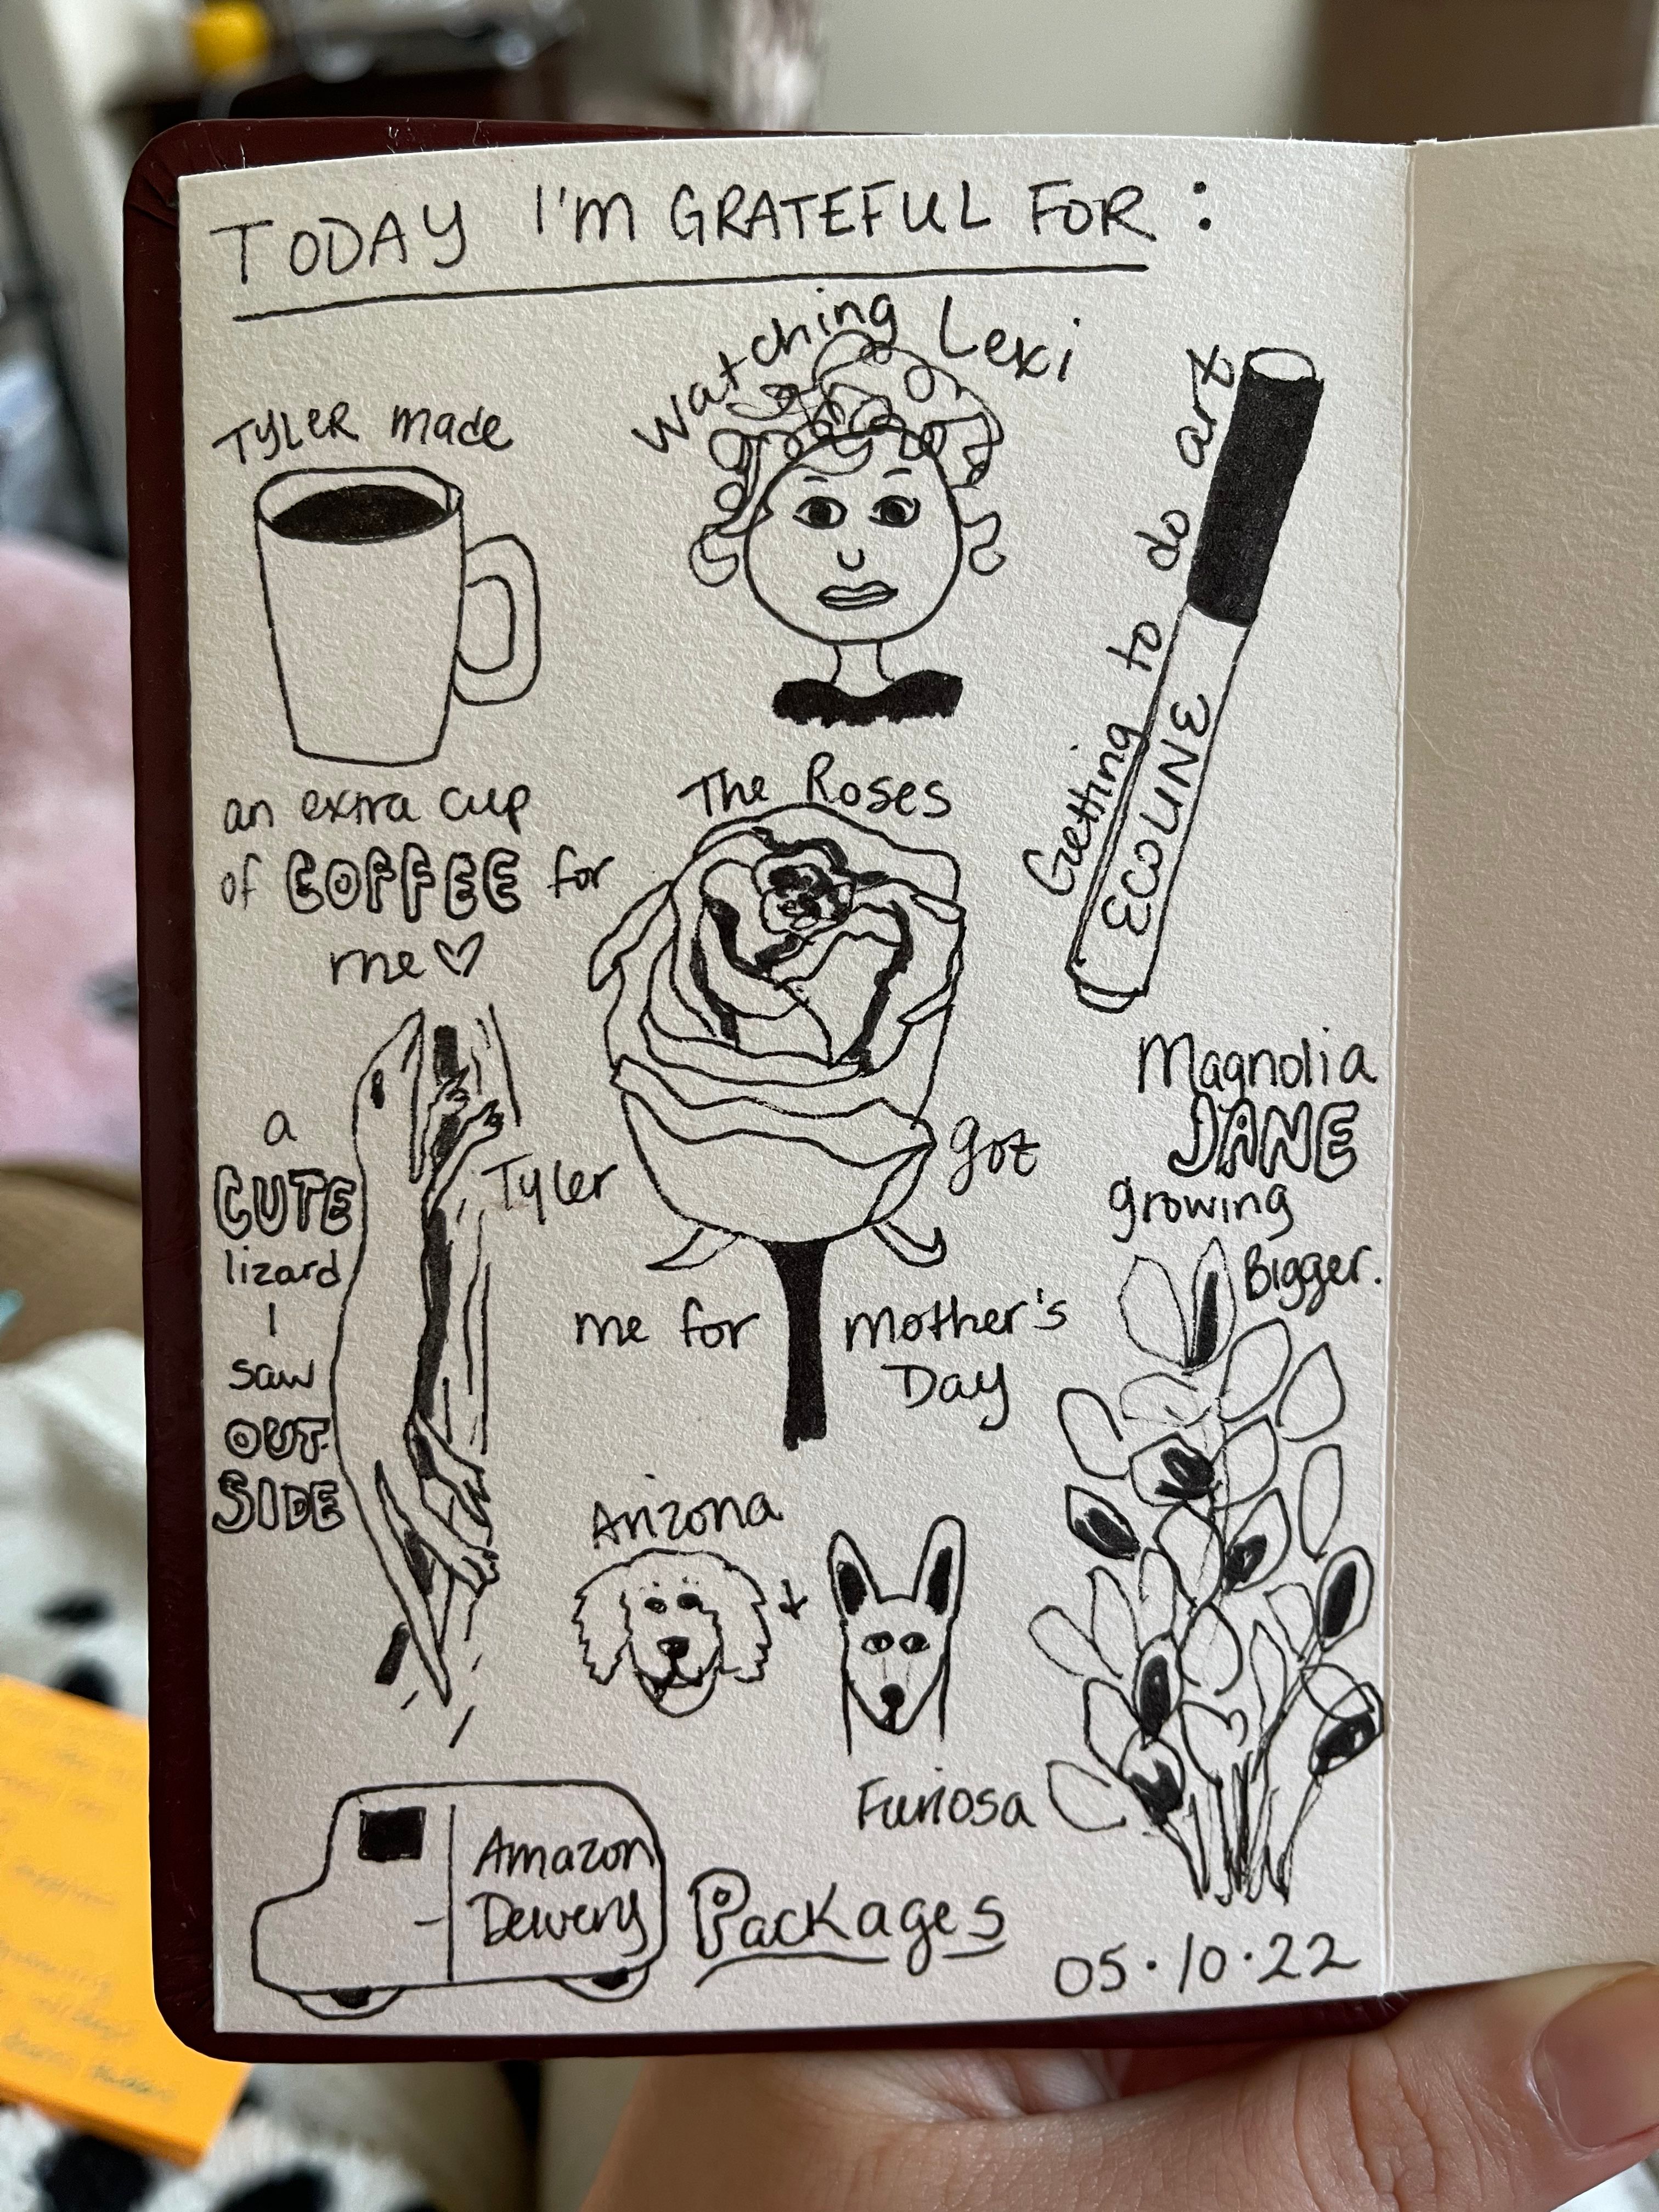 TODAY I'M GRATEFUL FOR:
TYLER made
an extra cup
of COFFEE for
me
watching Lexi
Getting to do art
ECOLINE
The Roses
Tyler got
me for mother's
Day
a
CUTE
lizard
I
saw
OUT
SIDE
Magnolia
JANE
growing
Bigger.
Arizona
+
Furiosa
Amazon
Delivery
Packages
05.10.22